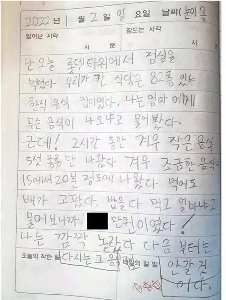 2022년 1월 2일 일 요일 날씨(눈이 옴
일어난 시각 잠드는 시각
시 분 시 분
난 오늘 롯데타워에서 점심을
먹었다. 우리가 간 식당은 82층 있는
한식 음식 집이였다. 나는 엄마에게
무슨 음식이 나오냐고 물어봤다.
근데! 2시간 동안 겨우 작은 음식
5섯 만 나왔다. 겨우 조그만 음식이
15에서 20분 정도에 나왔다. 먹어도
배가 고팠다. 밥을 다 먹고 얼마냐고
물어보니까, 만원이였다.
나는 깜짝 놀랐다 다음 부터는
오늘의 착한 일 다시는 그 내일의 할 일 안갈 것
이다.